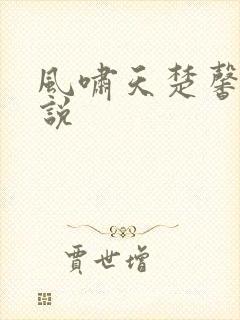 風嘯天楚馨
說
賈世增